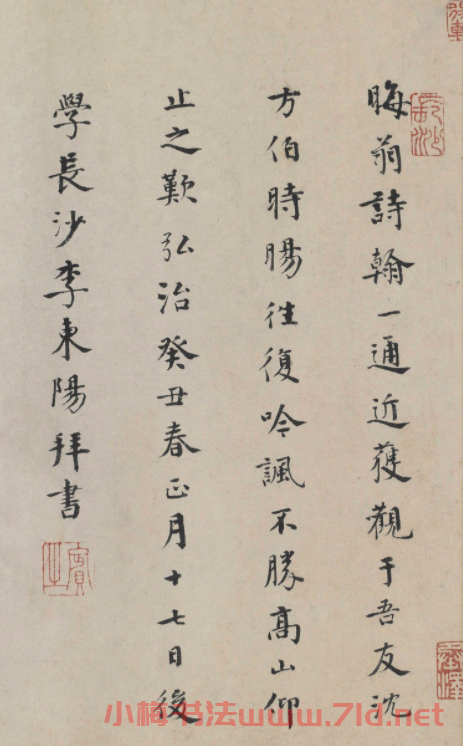 晦翁詩翰一通近獲觀于吾友沈
方伯時暘徃復吟諷不勝高山仰
止之歎弘治癸丑春正月十七日後
學長沙李東陽拜書
賓之
長沙
小梅书法www.7ld.net